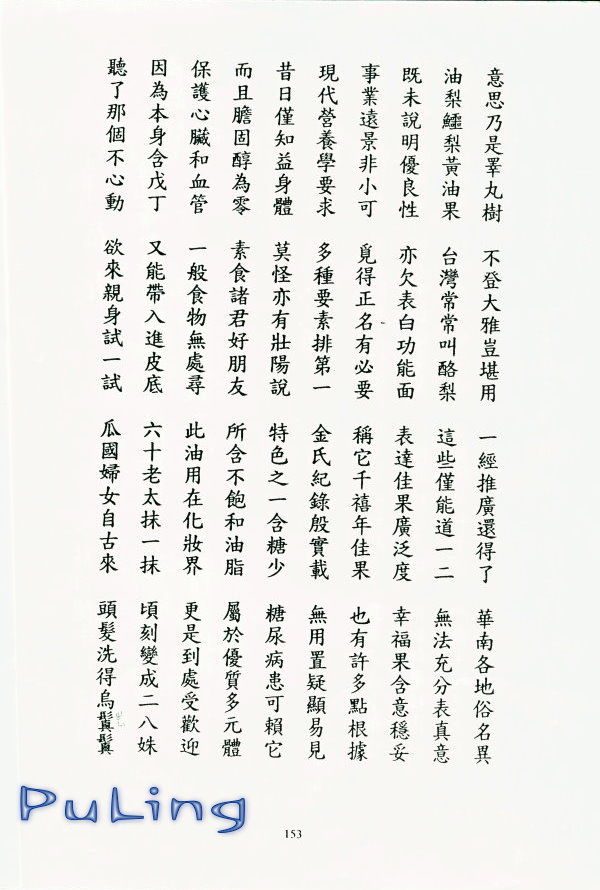 意思乃是睪丸樹　不登大雅豈堪用　一經推廣還得了　華南各地俗名異
油梨鱷梨黃油果　台灣常常叫酪梨　這些僅能道一二　無法充分表真意
既未說明優良性　亦欠表白功能面　表達佳果廣泛度　幸福果含意穩妥
事業遠景非小可　覓得正名有必要　稱它千禧年佳果　也有許多點根據
現代營養學要求　多種要素排第一　金氏紀錄殷實載　無用置疑顯易見
昔日僅知益身體　莫怪亦有壯陽說　特色之一含糖少　糖尿病患可賴它
而且膽固醇為零　素食諸君好朋友　所含不飽和油脂　屬於優質多元體
保護心臟和血管　一般食物無處尋　此油用在化妝界　更是到處受歡迎
因為本身含戊丁　又能帶入進皮底　六十老太抹一抹　頃刻變成二八姝
聽了那個不心動　欲來親身試一試　瓜國婦女自古來　頭髮洗得烏鬒鬒
PuLing
153